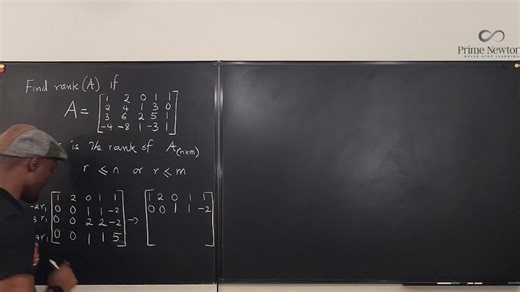 Prime Newton
NEVER STOP LEARNING
Find rank(A) if
A = [1 2 0 1 1
2 4 1 3 0
3 6 2 5 1
-4 -8 1 -3 1]
is the rank of A(n×m)
r ≤ n or r ≤ m
[1 2 0 1 1 → [1 2 0 1 1
-2r₁ 0 0 1 1 -2 0 0 1 1 -2]
3r₁ 0 0 2 2 -2
4r₁ 0 0 1 1 5]